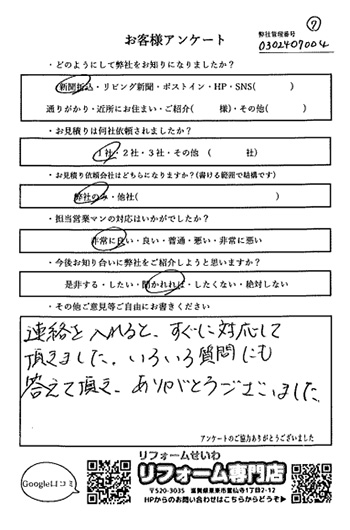 ⑦
お客様アンケート
弊社管理番号
0302409004
・どのようにして弊社をお知りになりましたか？
新聞折込・リビング新聞・ポストイン・HP・SNS(　　　)
通りがかり・近所にお住まい・ご紹介(　　　様)・その他(　　　)
・お見積りは何社依頼されましたか？
1社・2社・3社・その他　(　　　社)
・お見積り依頼会社はどちらになりますか？(書ける範囲で結構です)
弊社のみ・他社(　　　)
・担当営業マンの対応はいかがでしたか？
非常に良い・良い・普通・悪い・非常に悪い
・今後お知り合いに弊社をご紹介しようと思いますか？
是非する・したい・聞かれれば・したくない・絶対しない
・その他ご意見等ご自由にお書きください
連絡を入れると、すぐに対応して
頂きました。いろいろ質問にも
答えて頂き、ありがとうございました
アンケートのご協力ありがとうございました
Google口コミ
リフォームせいわ
リフォーム専門店
〒520-3035　滋賀県栗東市霊仙寺1丁目2-12
HPからのお問い合わせはこちらからどうぞ▶